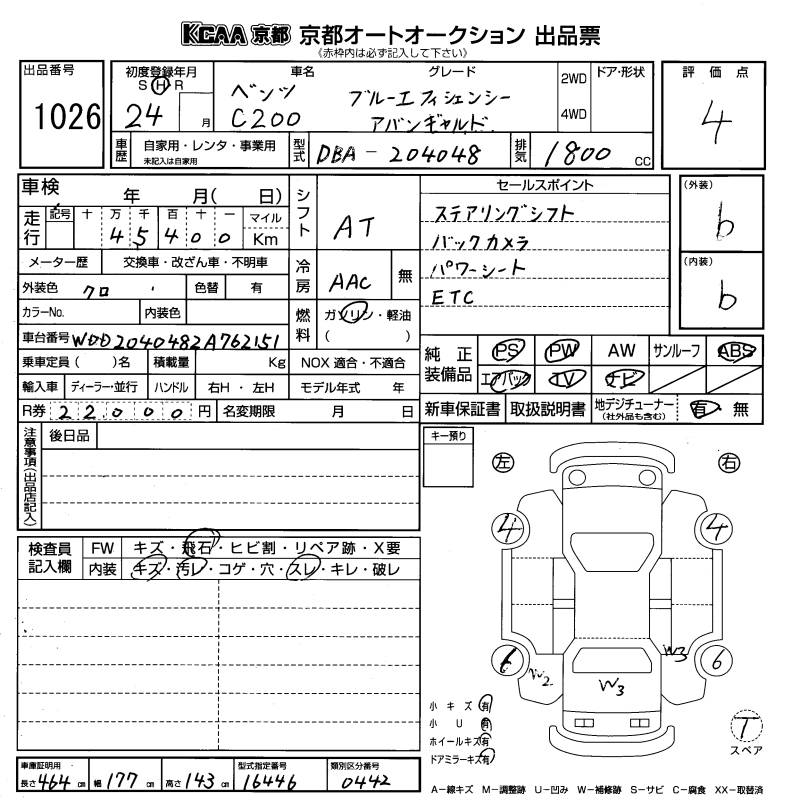 KCAA 京都 京都オートオークション 出品票
《赤枠内は必ず記入して下さい》
出品番号
1026
初度登録年月
S H R
24 月
車名
ベンツ
C200
グレード
ブルーエフィシェンシー
アバンギャルド
2WD
4WD
ドア・形状
評価点
4
車歴
自家用・レンタ・事業用
未記入は自家用
型式
DBA-204048
排気
1800 CC
車検
年 月( 日)
走行
記号 十 万 千 百 十 一 マイル
4 5 4 0 0 Km
シフト
AT
メーター歴 交換車・改ざん車・不明車
外装色 クロ 色替 有
カラーNo. 内装色
冷房
AAC 無
燃料
ガソリン・軽油
( )
車台番号 WDD2040482A762151
乗車定員( )名 積載量 Kg NOX 適合・不適合
輸入車 ディーラー・並行 ハンドル 右H・左H モデル年式 年
R券 22000 円 名変期限 月 日
セールスポイント
ステアリングシフト
バックカメラ
パワーシート
ETC
(外装)
b
(内装)
b
純正装備品
PS PW AW サンルーフ ABS
エアバック TV ナビ
新車保証書 取扱説明書 地デジチューナー (社外品も含む) 有・無
注意事項(出品店記入)
後日品
キー預り
左 右
4 4
6 6
W2 W3 W3
検査員記入欄
FW キズ・飛石・ヒビ割・リペア跡・X要
内装 キズ・汚レ・コゲ・穴・スレ・キレ・破レ
小キズ 有
小U 有
ホイールキズ 有
ドアミラーキズ 有
T
スペア
車庫証明用
長さ 464 cm 幅 177 cm 高さ 143 cm
型式指定番号
16446
類別区分番号
0442
A-線キズ M-調整跡 U-凹み W-補修跡 S-サビ C-腐食 XX-取替済